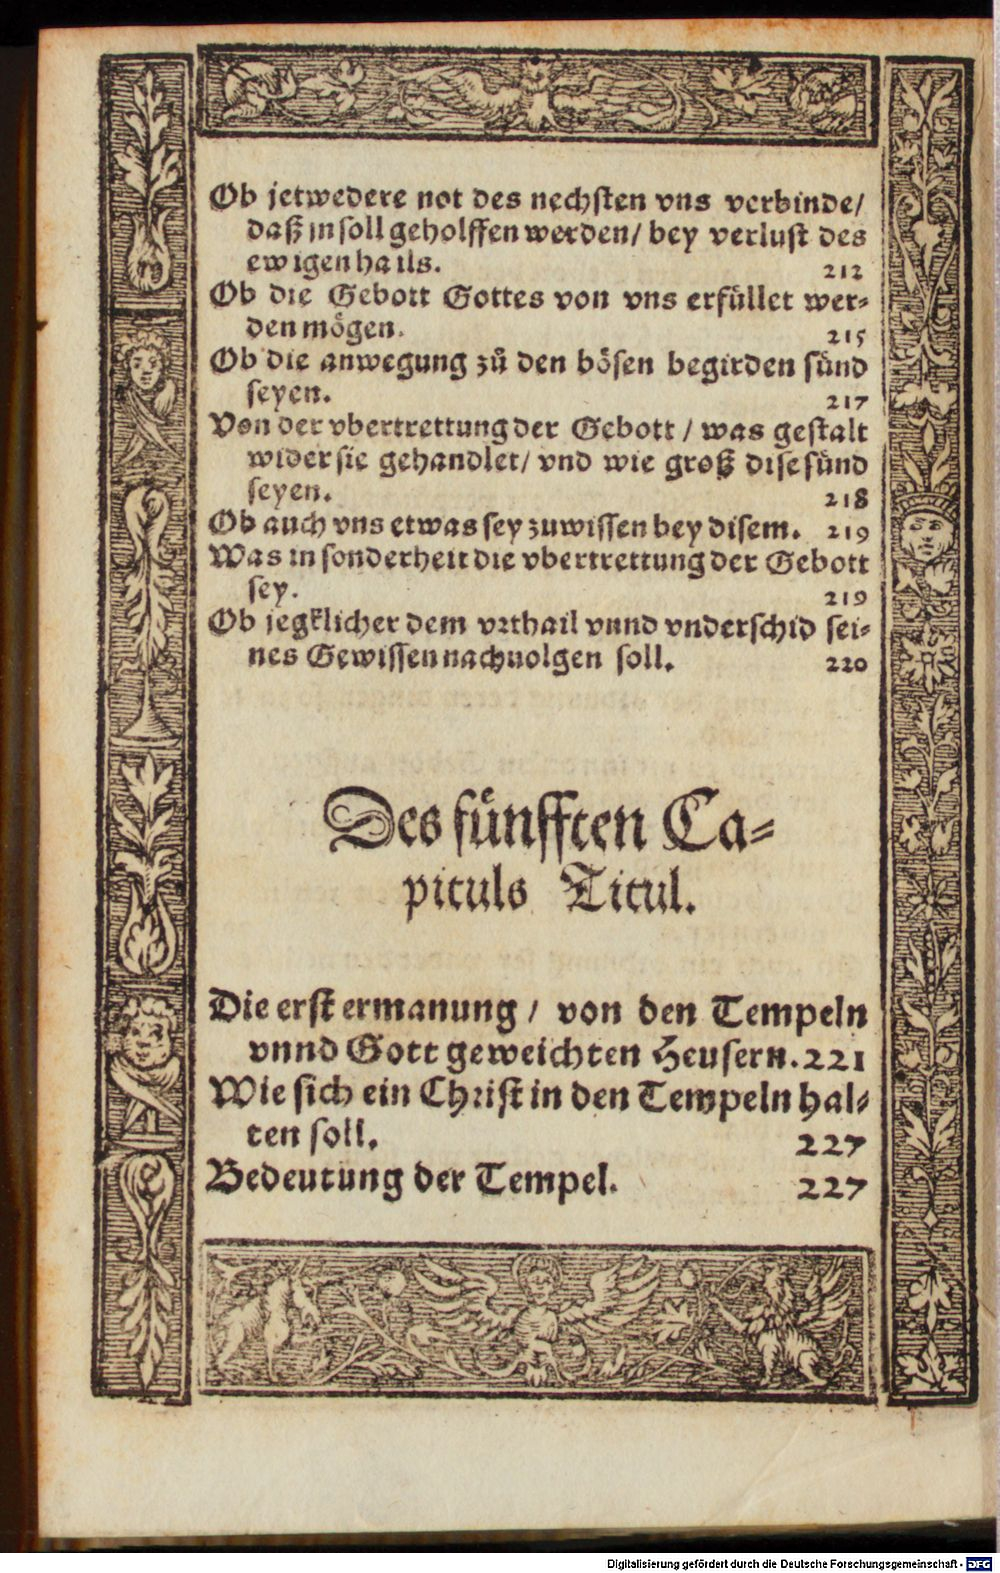 Ob jetwedere not des nechsten vns verbinde/
daß in soll geholffen werden/ bey verlust des
ewigen hails. 212
Ob die Gebott Gottes von vns erfüllet wer-
den mögen. 215
Ob die anwegung zů den bösen begirden sünd
seyen. 217
Von der vbertrettung der Gebott / was gestalt
wider sie gehandlet/ vnd wie groß dise sünd
seyen. 218
Ob auch vns etwas sey zuwissen bey disem. 219
Was in sonderheit die vbertrettung der Gebott
sey. 219
Ob jegklicher dem vrthail vnnd vnderschid sei-
nes Gewissen nachuolgen soll. 220
Des fünfften Ca-
pituls Titul.
Die erst ermanung / von den Tempeln
vnnd Gott geweichten Heusern. 221
Wie sich ein Christ in den Tempeln hal-
ten soll. 227
Bedeutung der Tempel. 227
Digitalisierung gefördert durch die Deutsche Forschungsgemeinschaft - DFG